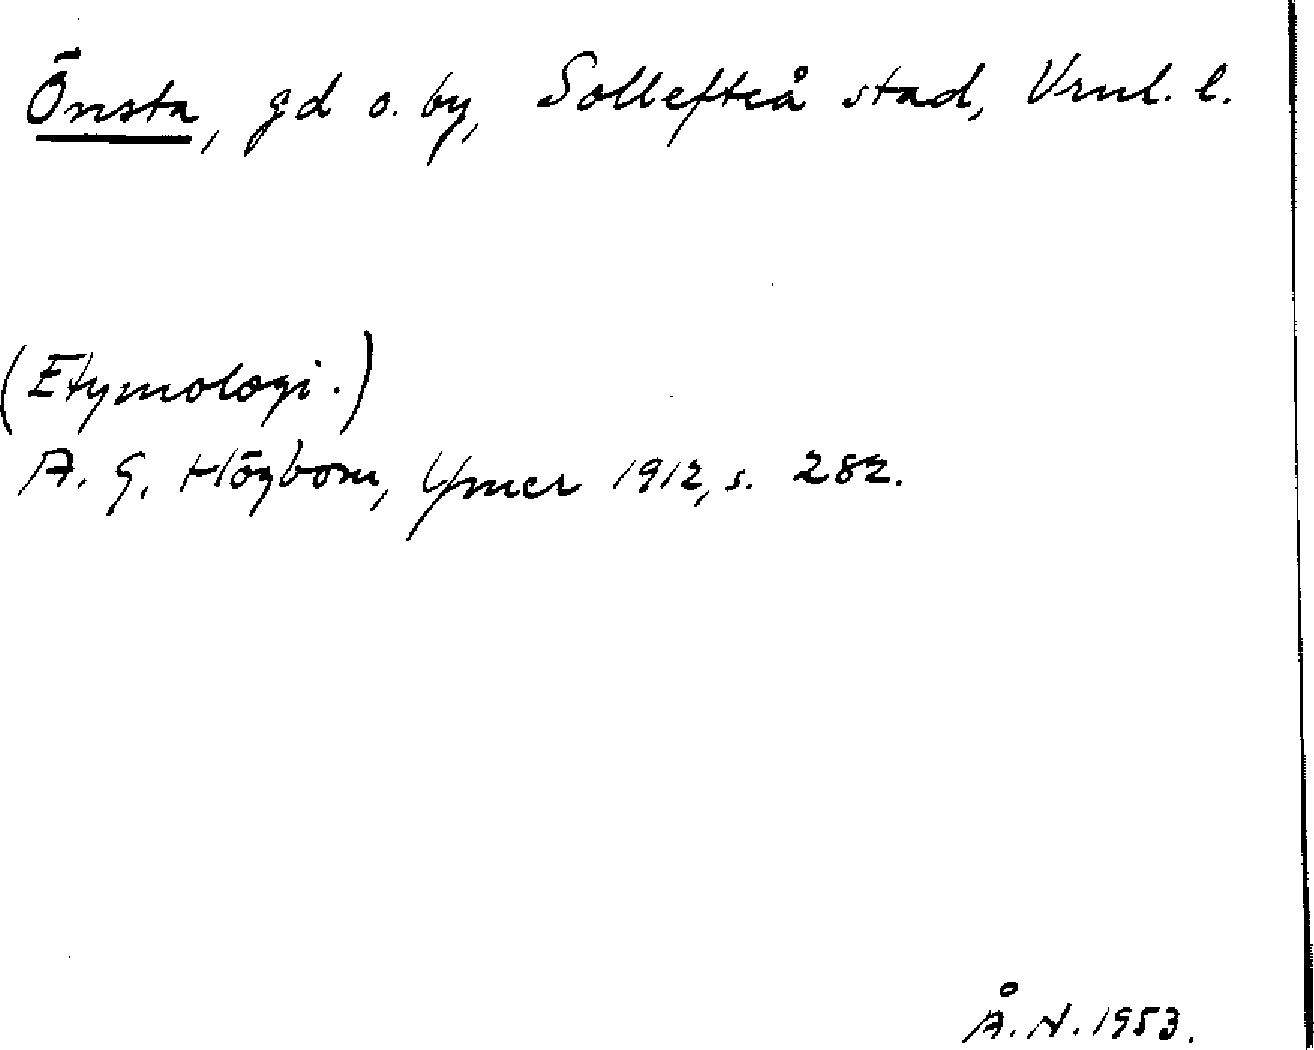 Önsta, gd o. by, Sollefteå stad, Vrnl. l.
(Etymologi.)
A. G. Högbom, Ymer 1912, s. 282.
Å. N. 1953.